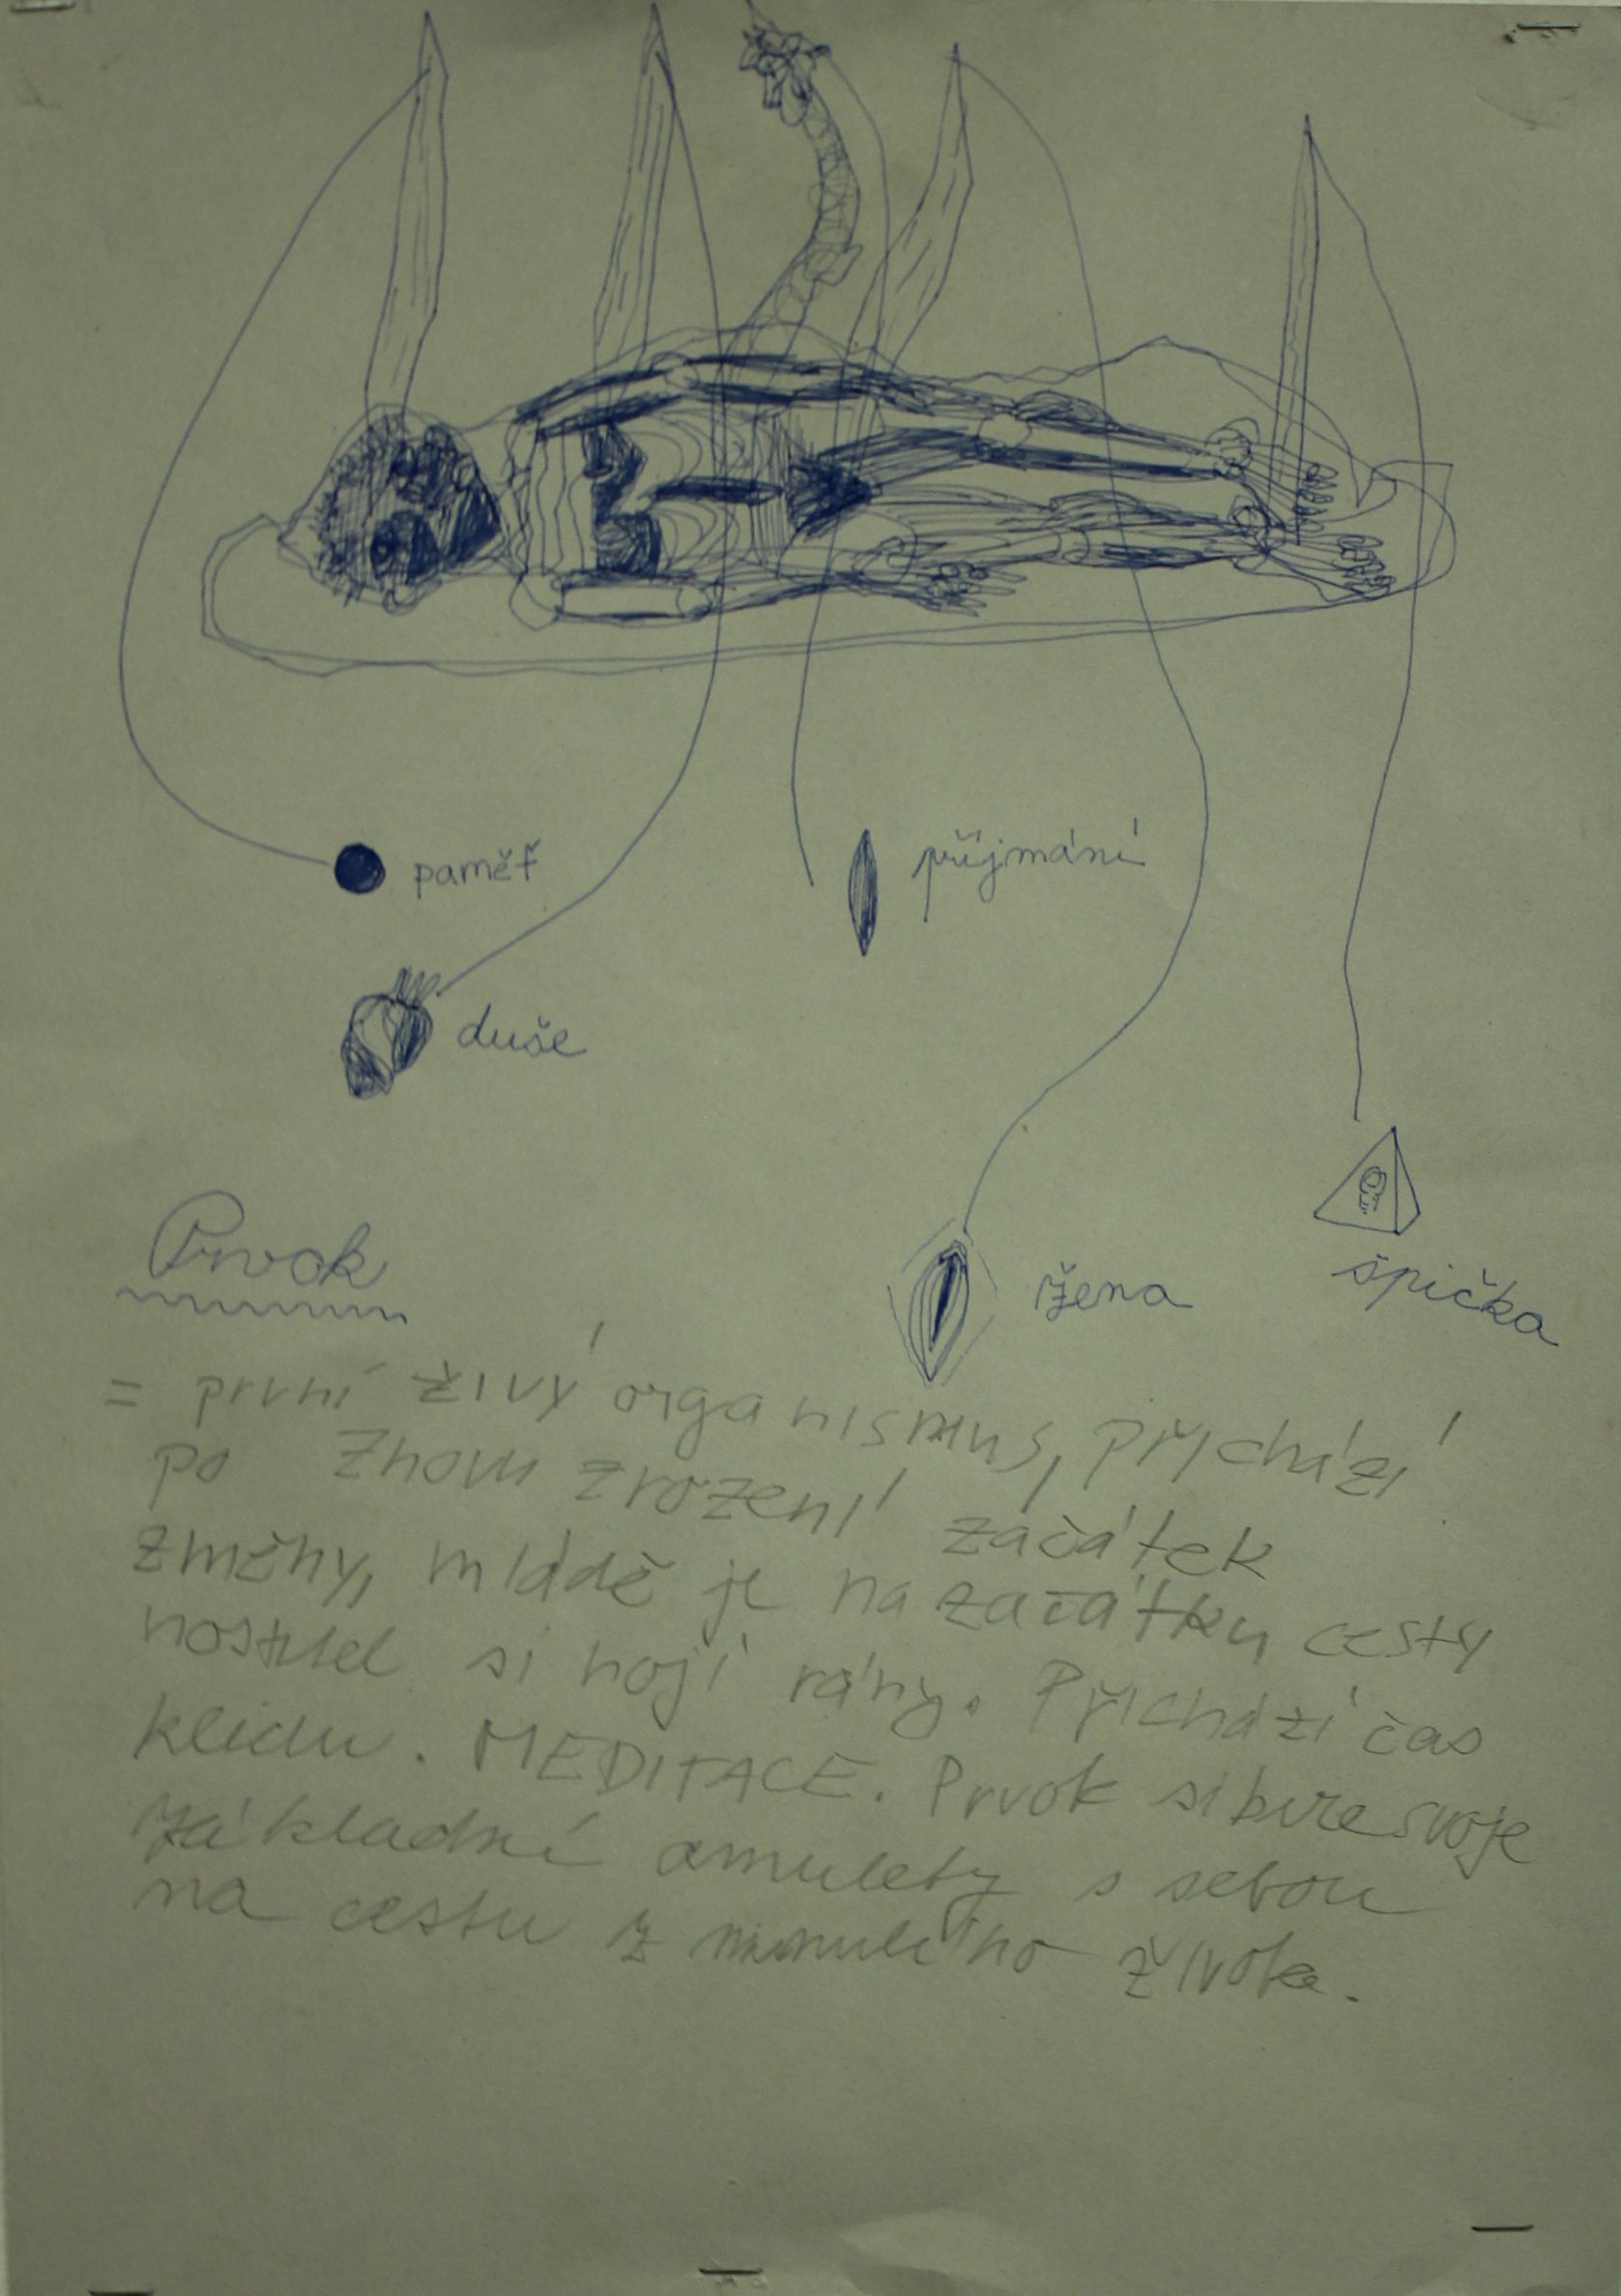 paměť
příjmání
duše
žena
špička
Prvok
= první živý organismus, přichází
po znovu zrození začátek
změny, mládě je na začátku cesty
nositel si hojí rány. Přichází čas
klidu. MEDITACE. Prvok si bere svoje
základní amulety s sebou
na cestu z minulého života.